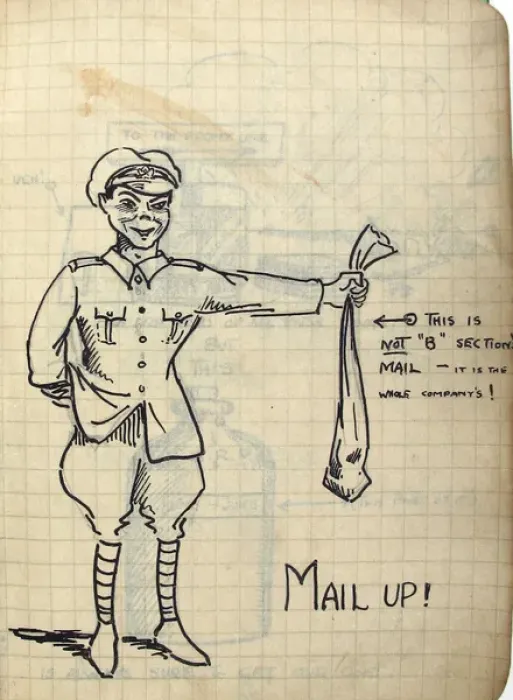 THIS IS
NOT "B" SECTION'S
MAIL — IT IS THE
WHOLE COMPANY'S!
MAIL UP!
TO THE
BUT
THIS